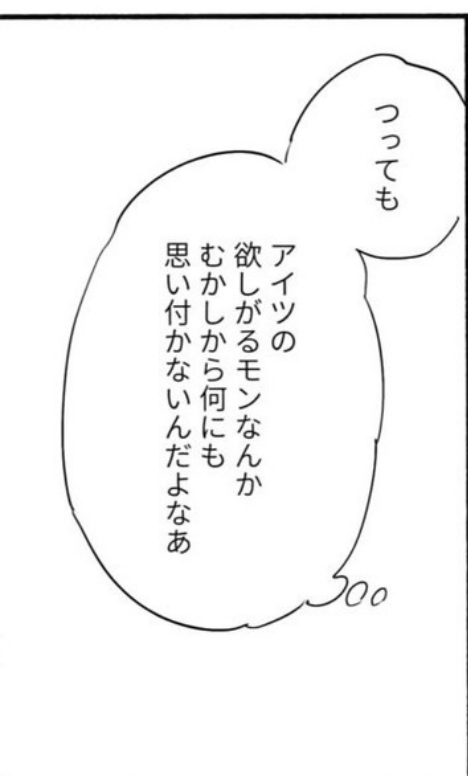 つっても
アイツの
欲しがるモンなんか
むかしから何にも
思い付かないんだよなあ